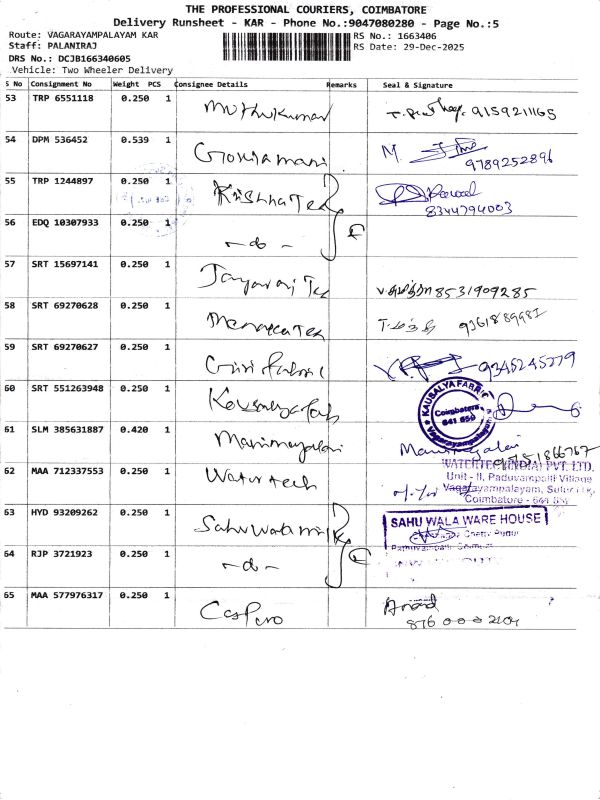 THE PROFESSIONAL COURIERS, COIMBATORE
Delivery Runsheet - KAR - Phone No.:9047080280 - Page No.:5
Route: VAGARAYAMPALAYAM KAR
RS No.: 1663406
Staff: PALANIRAJ
RS Date: 29-Dec-2025
DRS No.: DCJB166340605
Vehicle: Two Wheeler Delivery
S No Consignment No Weight PCS Consignee Details Remarks Seal & Signature
53 TRP 6551118 0.250 1 Muthukumar 9159211165
54 DPM 536452 0.539 1 M. 9789252896
55 TRP 1244897 0.250 1 Krishna Tex 8344794003
56 EDQ 10307933 0.250 1 - do -
57 SRT 15697141 0.250 1 Jayaraj Tex 8531909285
58 SRT 69270628 0.250 1 Menaka Tex
59 SRT 69270627 0.250 1 Giri Fabric 9345245779
60 SRT 551263948 0.250 1 Kousalya Fab
KAUSALYA FABRIC
Coimbatore
641 659
Vagarayampalayam
61 SLM 385631887 0.420 1 Manimegalai Manimegalai
62 MAA 712337553 0.250 1 Watertech
WATERTEC (INDIA) PVT. LTD.
Unit - II, Paduvampalli Village
Vagarayampalayam, Sulur
Coimbatore - 641
63 HYD 93209262 0.250 1 Sahuwala
SAHU WALA WARE HOUSE
64 RJP 3721923 0.250 1 - do -
65 MAA 577976317 0.250 1 Caspro Anand
876 000 2104